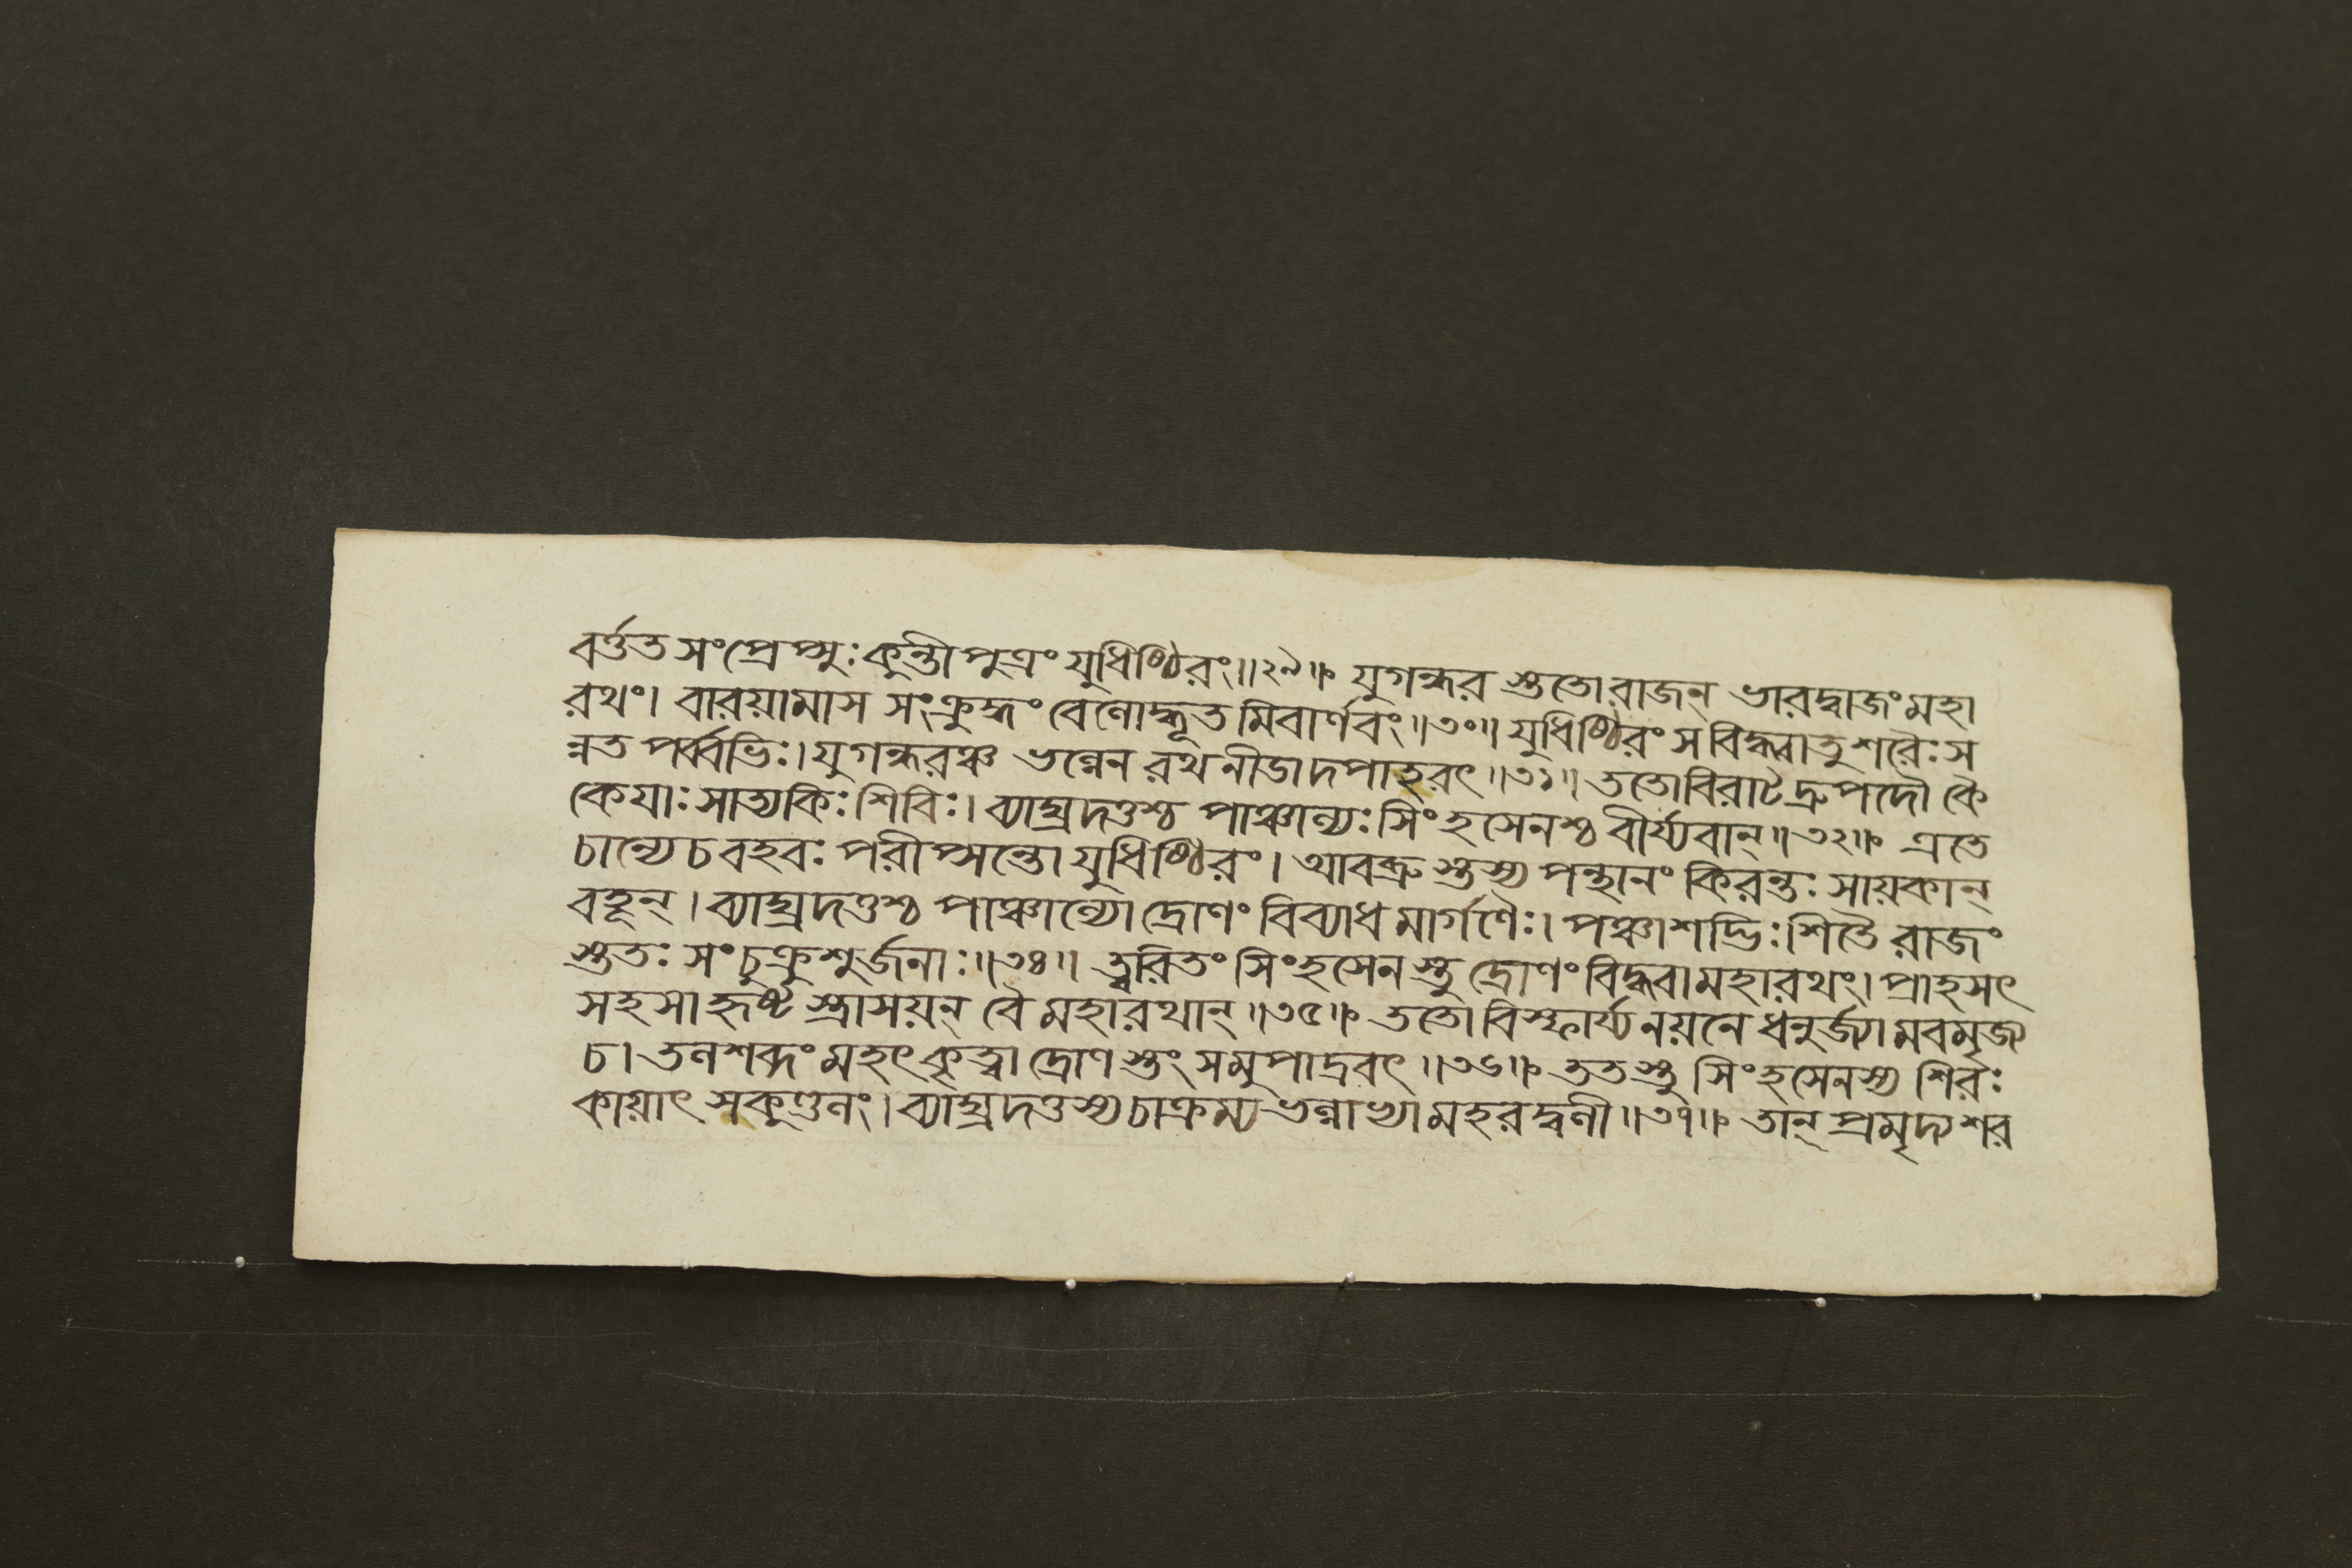 বর্ত্তত সংপ্রেপ্সুঃ কুন্তীপুত্রং যুধিষ্ঠিরং॥২৯॥ যুগন্ধর স্তুতোরাজন্ ভারদ্বাজং মহা
রথং। বারয়ামাস সংক্রুদ্ধং বেলোদ্ধূত মিবার্ণবং॥৩০॥ যুধিষ্ঠিরং স বিদ্ধ্বাতু শরৈঃ স
ন্নত পর্ব্বভিঃ। যুগন্ধরঞ্চ ভল্লেন রথনীডাদপাহরৎ॥৩১॥ ততোবিরাটদ্রুপদৌ কৈ
কেযাঃ সাত্যকিঃ শিবিঃ। ব্যাঘ্রদত্তশ্চ পাঞ্চাল্যঃ সিংহসেনশ্চ বীর্য্যবান্॥৩২॥ এতে
চান্যে চ বহবঃ পরীপ্সন্তো যুধিষ্ঠিরং। আবব্রুস্তস্য পন্থানং কিরন্তঃ সায়কান্
বহূন্। ব্যাঘ্রদত্তশ্চ পাঞ্চাল্যো দ্রোণং বিব্যাধ মার্গণৈঃ। পঞ্চাশদ্ভিঃ শিতৈ রাজং
স্ততঃ সংচুক্রুশুর্জনাঃ॥৩৪॥ ত্বরিতং সিংহসেনস্তু দ্রোণং বিদ্ধ্বা মহারথং। প্রাহসৎ
সহসা হৃষ্টস্ত্রাসয়ন্ বৈ মহারথান্॥৩৫॥ ততো বিস্ফার্য্য নয়নে ধনুর্জ্যামবমৃজ্য
চ। তলশব্দং মহৎ কৃত্বা দ্রোণস্তং সমুপাদ্রবৎ॥৩৬॥ ততস্তু সিংহসেনস্য শিরঃ
কায়াৎ সকুণ্ডলং। ব্যাঘ্রদত্তস্য চাক্রম্য ভল্লাভ্যামহরদ্বলী॥৩৭॥ তান্ প্রমৃদ্য শর